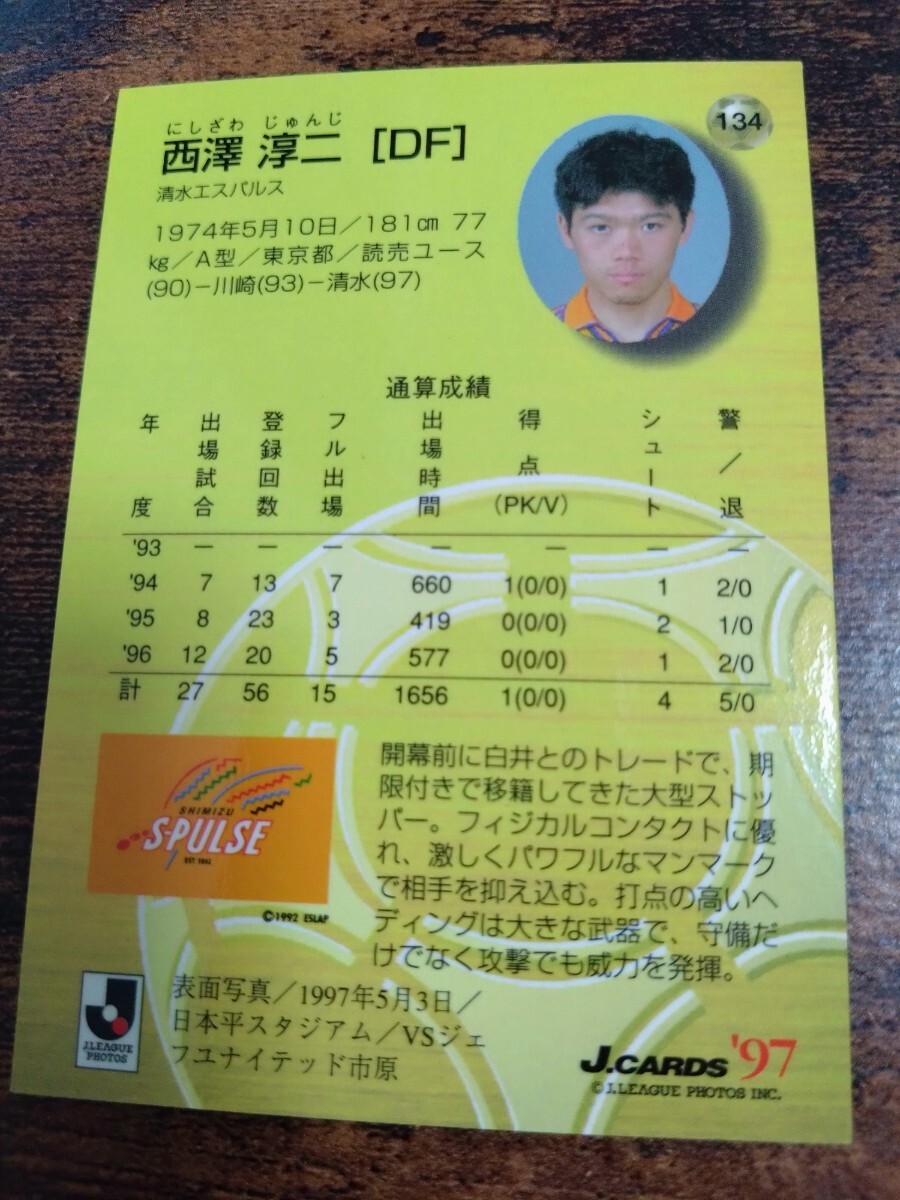 にしざわ じゅんじ
西澤 淳二 [DF]
134
清水エスパルス
1974年5月10日/181cm 77
kg/A型/東京都/読売ユース
(90)-川崎(93)-清水(97)
通算成績
年度 出場試合 登録回数 フル出場 出場時間 得点(PK/V) シュート 警/退
'93 — — — — — — —
'94 7 13 7 660 1(0/0) 1 2/0
'95 8 23 3 419 0(0/0) 2 1/0
'96 12 20 5 577 0(0/0) 1 2/0
計 27 56 15 1656 1(0/0) 4 5/0
SHIMIZU
S-PULSE
EST 1992
©1992 ESLAP
開幕前に白井とのトレードで、期
限付きで移籍してきた大型ストッ
パー。フィジカルコンタクトに優
れ、激しくパワフルなマンマーク
で相手を抑え込む。打点の高いヘ
ディングは大きな武器で、守備だ
けでなく攻撃でも威力を発揮。
表面写真/1997年5月3日/
日本平スタジアム/VSジェ
フユナイテッド市原
J.LEAGUE
PHOTOS
J.CARDS '97
©J.LEAGUE PHOTOS INC.